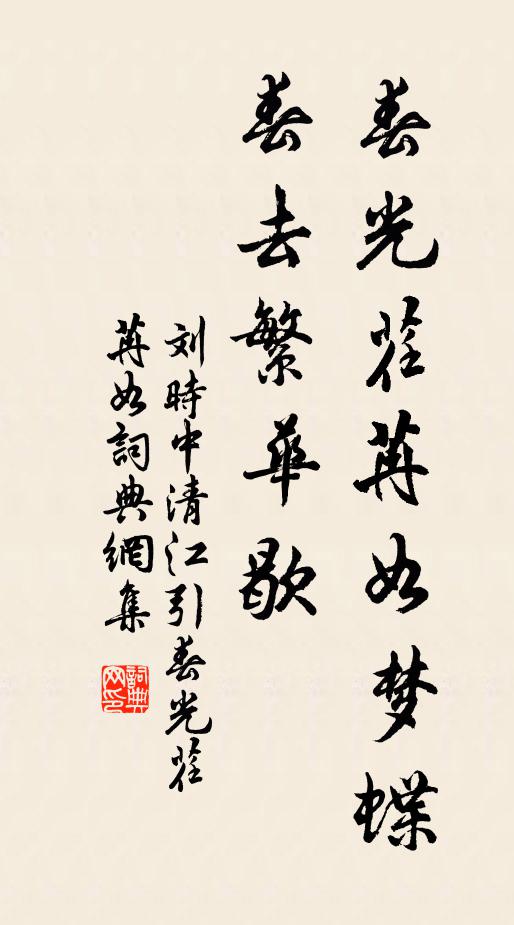 春光荏苒如梦蝶
春去繁華歇
刘時中清江引春光荏
苒如詞典網集
詞典
网印